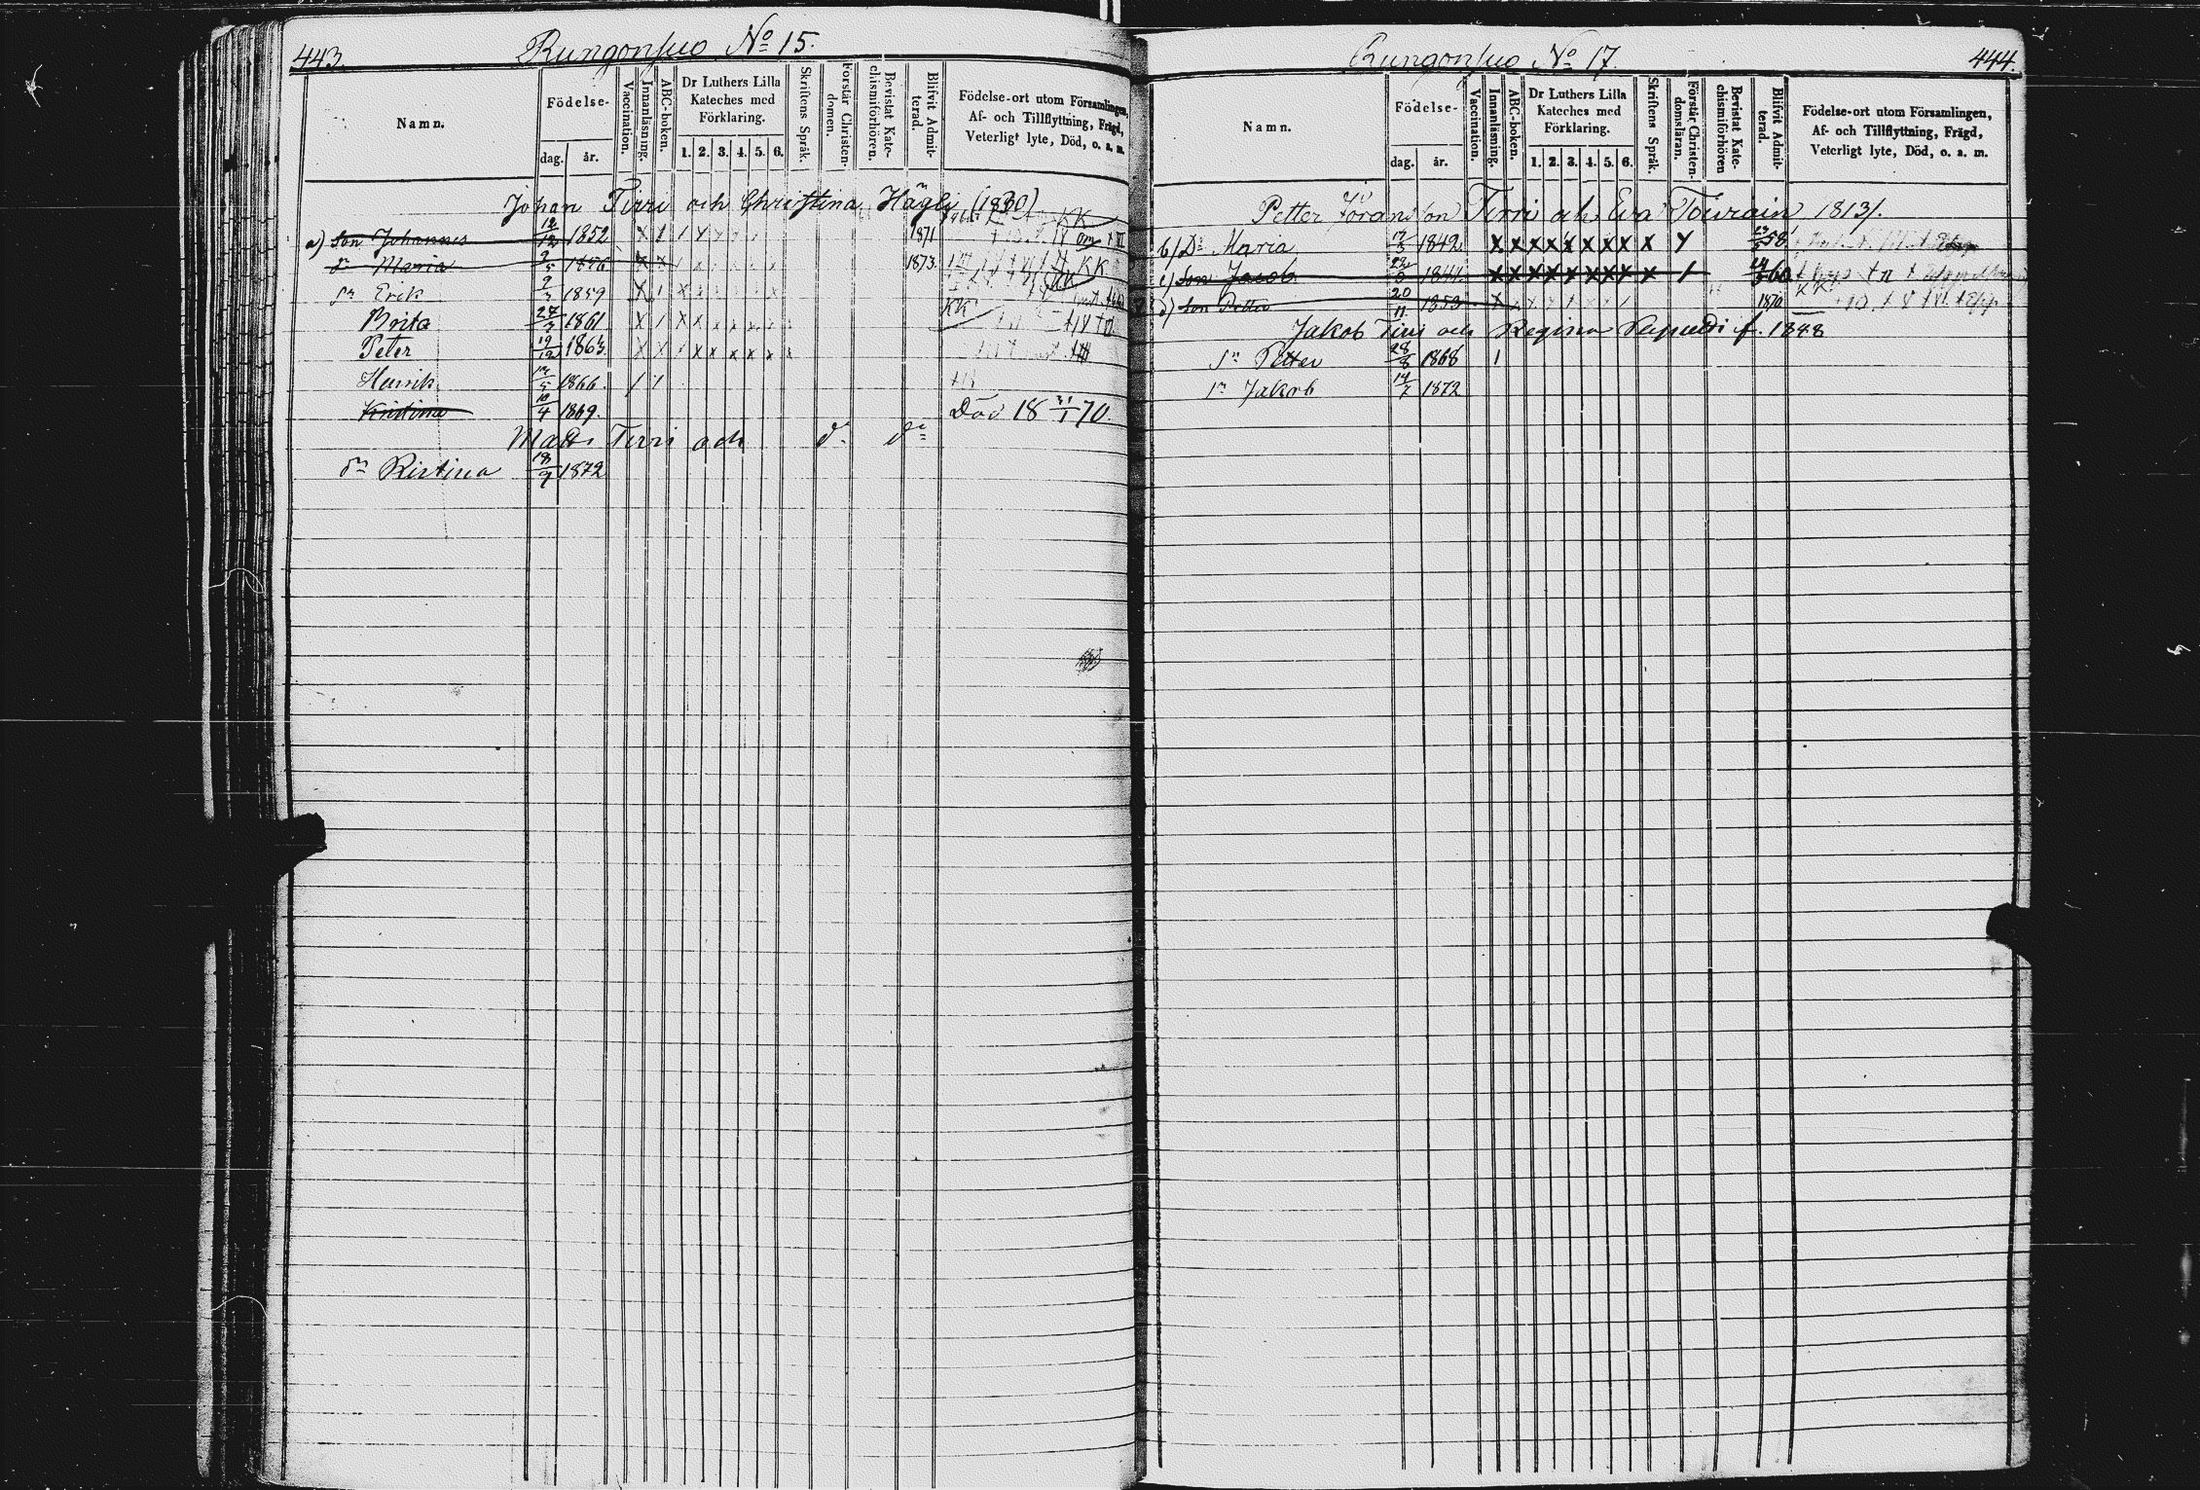 443.
Rungonsuo No 15.
Namn.
Födelse-
dag.
år.
Vaccination.
Innanläsning.
ABC-boken.
Dr Luthers Lilla
Kateches med
Förklaring.
1. 2. 3. 4. 5. 6.
Skriftens Språk.
Förstår Christen-
domen.
Bevistat Kate-
chismiförhören.
Blifvit Admit-
terad.
Födelse-ort utom Församlingen,
Af- och Tillflyttning, Frägd,
Veterligt lyte, Död, o. a. m.
Johan Tirri och Christina Hägli (1830)
a) Son Johannes 12/12 1852 1871
dr Maria 1856 1873.
sn Erik 1859
Brita 24/3 1861
Peter 19/12 1863
Henrik 1866.
Kristina 10/4 1869. Död 18 31/1 70.
Matts Tirri och do do
dr Ristina 18/9 1872
444.
Rungonsuo No 17.
Namn.
Födelse-
dag.
år.
Vaccination.
Innanläsning.
ABC-boken.
Dr Luthers Lilla
Kateches med
Förklaring.
1. 2. 3. 4. 5. 6.
Skriftens Språk.
Förstår Christen-
domsläran.
Bevistat Kate-
chismiförhören
Blifvit Admit-
terad.
Födelse-ort utom Församlingen,
Af- och Tillflyttning, Frägd,
Veterligt lyte, Död, o. a. m.
Petter Göransson Tirri och Eva Toivain 1813/.
b) Dr Maria 1842 58
c) Son Jacob 1844 60
d) Son Petter 20/11 1853 1870
Jakob Tirri och Regina f. 1848
sn Petter 28/8 1868
sn Jakob 14/7 1872